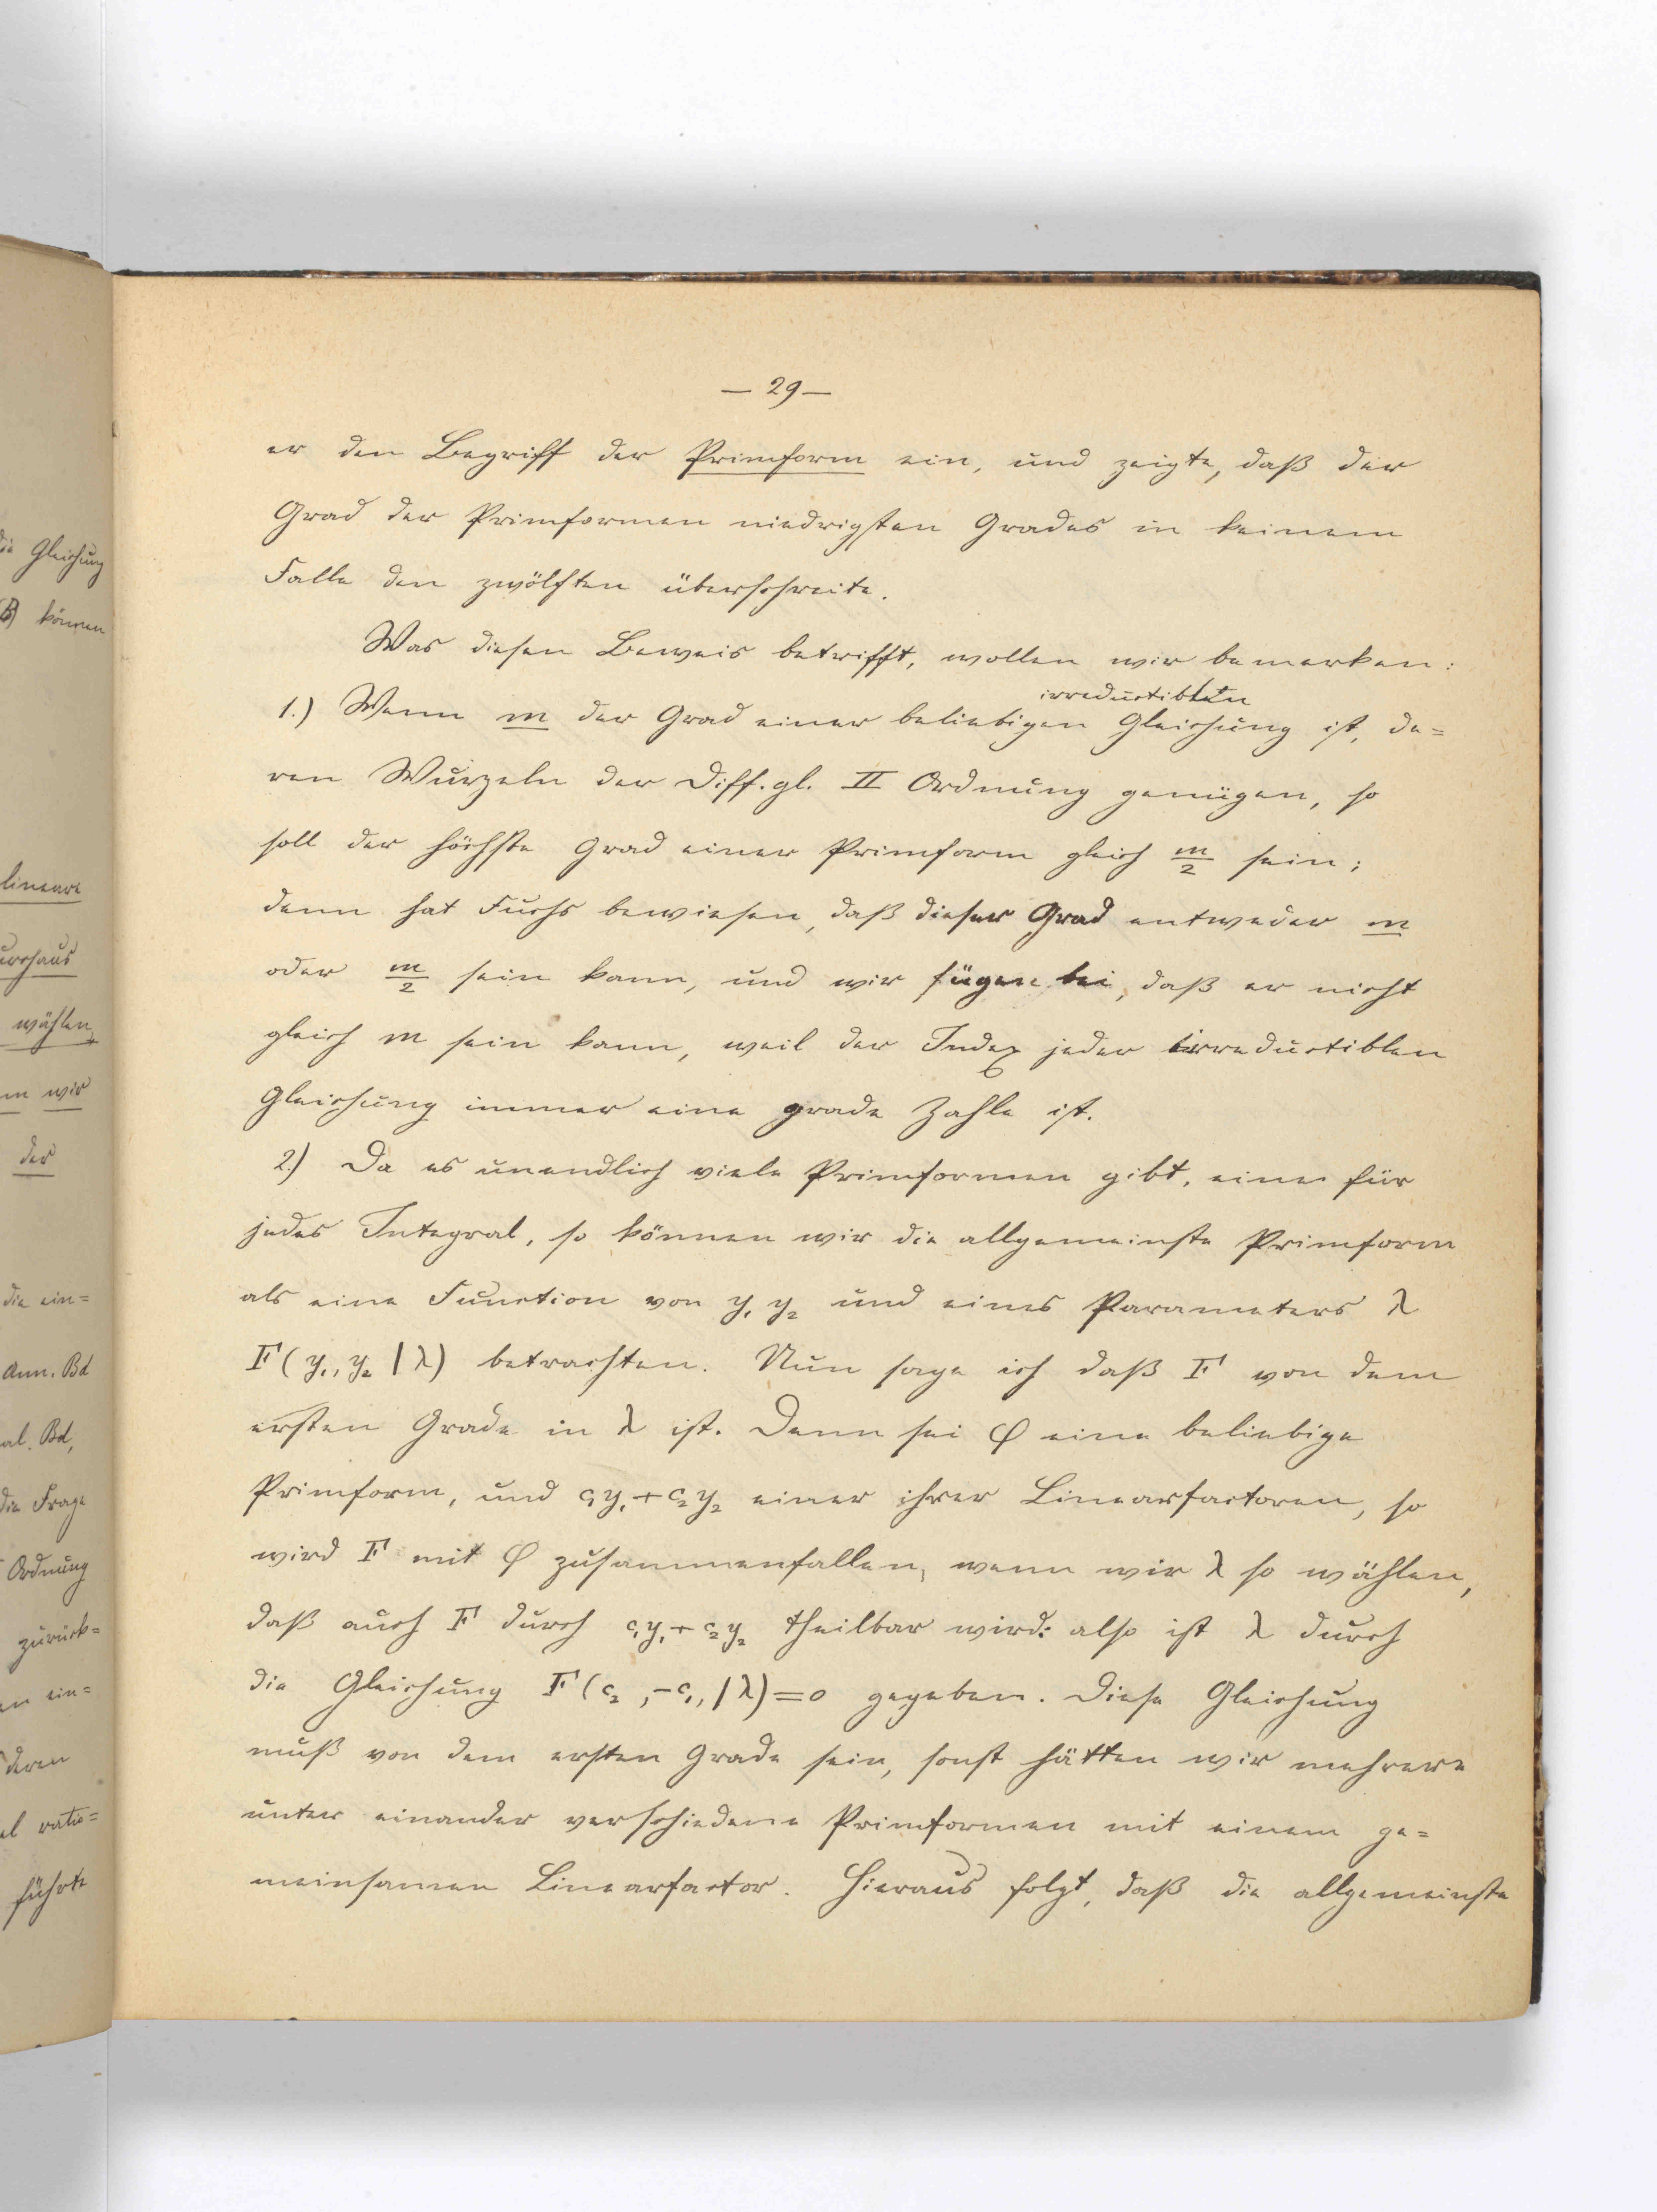 die Gleichung
B) können
lineare
urchaus
wählen,
nn wir
der
die ein=
Ann. Bd
al. Bd,
die Frage
Ordnung
zurück=
en ein=
deren
el ratio=
führte
— 29 —
er den Begriff der Primform ein, und zeigte, daß der
Grad der Primformen niedrigsten Grades in keinem
Falle den zwölften überschreite.
Was diesen Beweis betrifft, wollen wir bemerken:
irreductiblen
1.) Wenn m der Grad einer beliebigen Gleichung ist, de=
ren Wurzeln der Diff. gl. II Ordnung genügen, so
soll der höchste Grad einer Primform gleich m/2 sein;
denn hat Fuchs bewiesen, daß dieser Grad entweder m
oder m/2 sein kann, und wir fügen bei, daß er nicht
gleich m sein kann, weil der Index jeder irreductiblen
Gleichung immer eine grade Zahle ist.
2.) Da es unendlich viele Primformen gibt, eine für
jedes Integral, so können wir die allgemeinste Primform
als eine Function von y₁ y₂ und eines Parameters λ
F(y₁, y₂ | λ) betrachten. Nun sage ich daß F von dem
ersten Grade in λ ist. Denn sei φ eine beliebige
Primform, und c₁y₁ + c₂y₂ einer ihrer Linearfactoren, so
wird F mit φ zusammenfallen, wenn wir λ so wählen,
daß auch F durch c₁y₁ + c₂y₂ theilbar wird: also ist λ durch
die Gleichung F(c₂, -c₁, | λ) = 0 gegeben. Diese Gleichung
muß von dem ersten Grade sein, sonst hätten wir mehrere
unter einander verschiedene Primformen mit einem ge=
meinsamen Linearfactor. Hieraus folgt, daß die allgemeinste